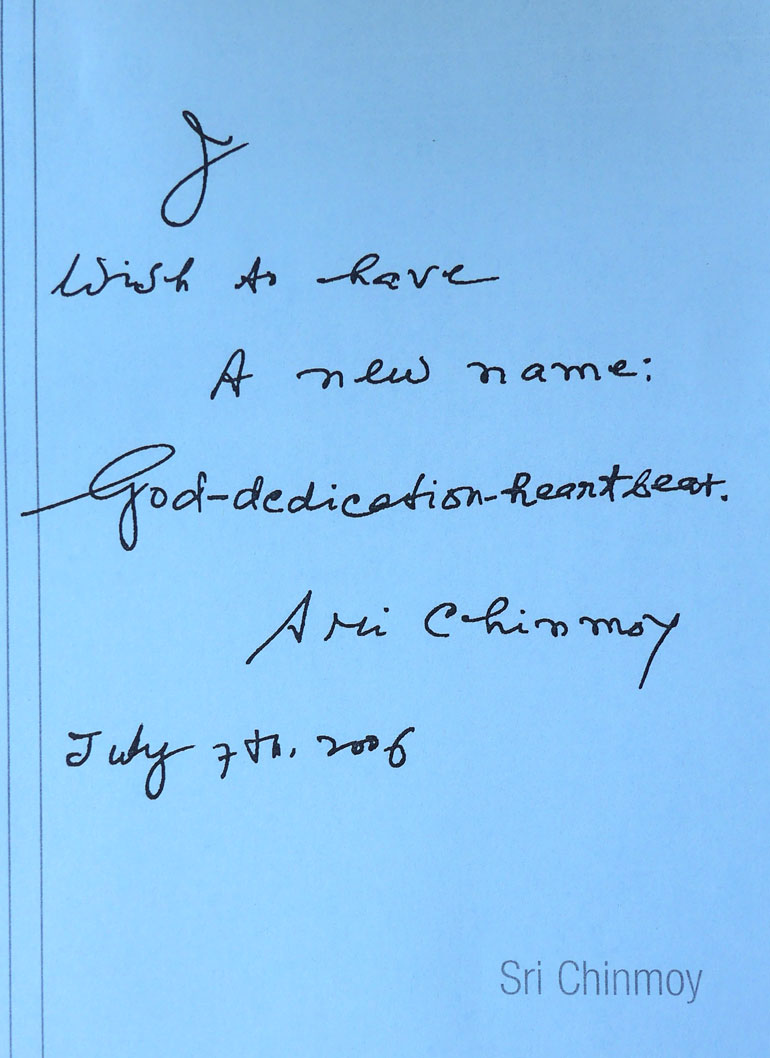 I
Wish to have
A new name:
God-dedication-heartbeat.
Sri Chinmoy
July 7th, 2006
Sri Chinmoy